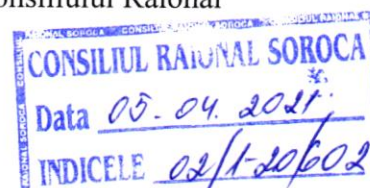 Consiliului Raional
CONSILIUL RAIONAL SOROCA
Data 05. 04. 2021
INDICELE 02/1-20/602